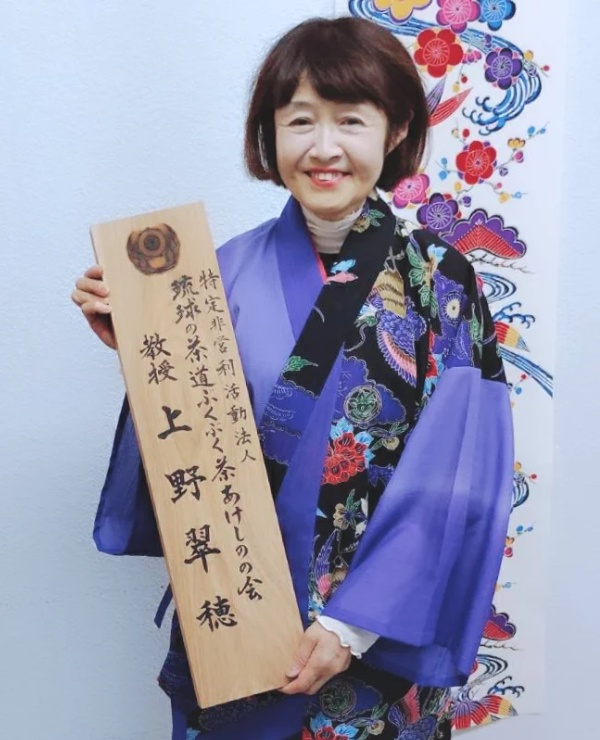 特定非営利活動法人
琉球の茶道ぶくぶく茶あけしのの会
教授 上野翠穂